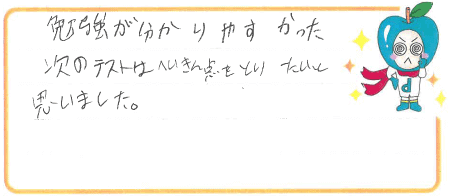 勉強が分かりやすかった
次のテストはへいきん点をとりたいと
思いました。
d